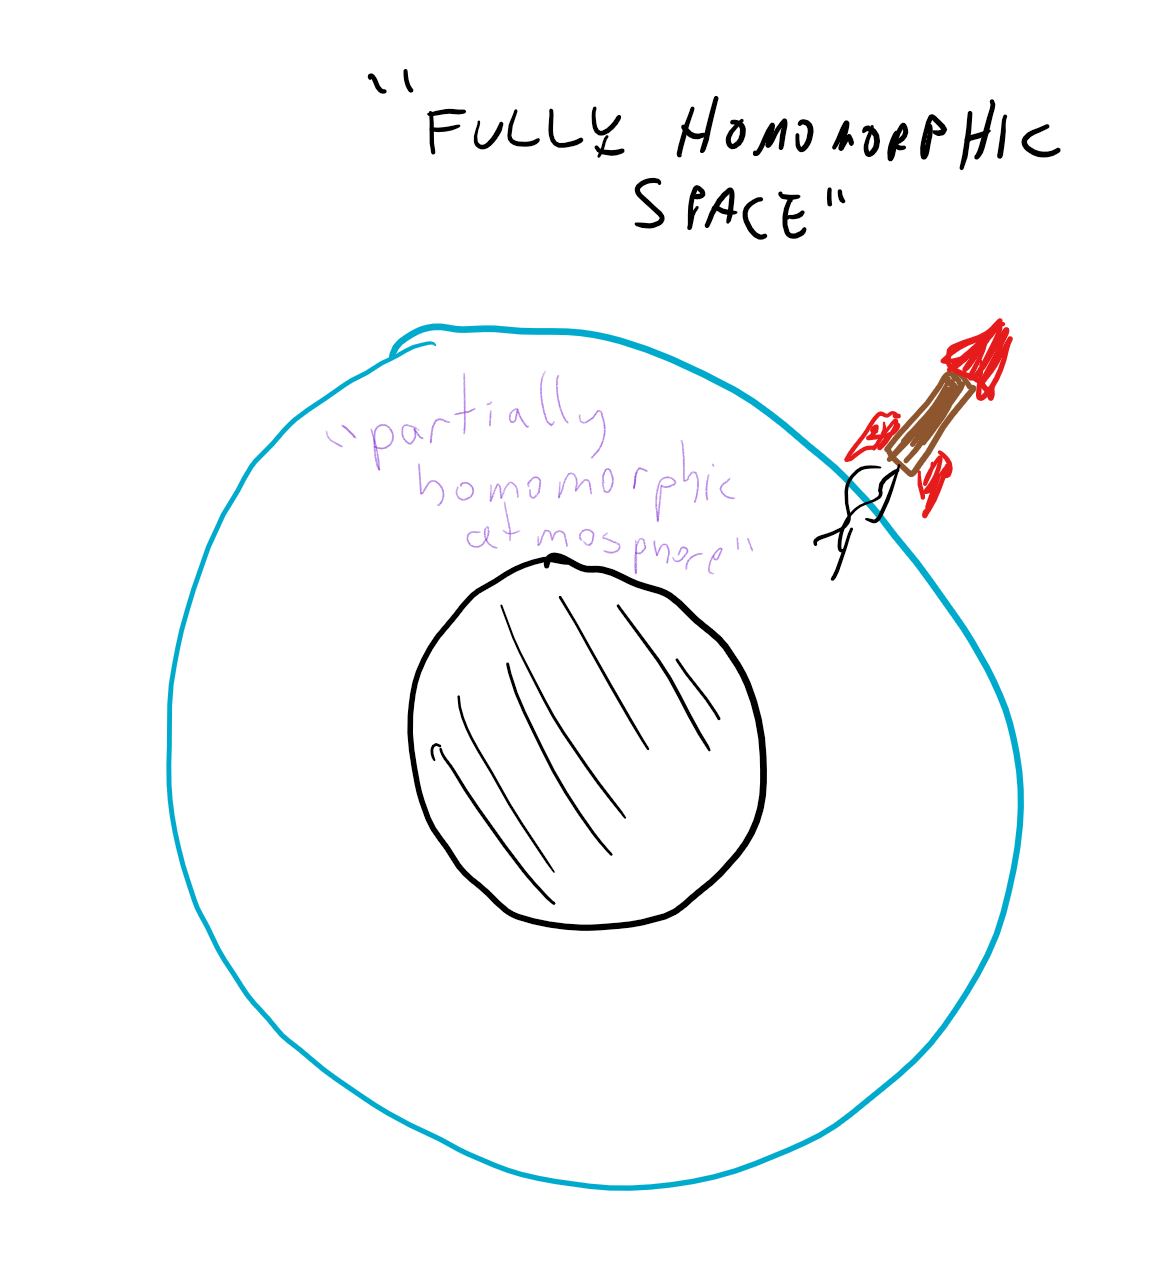 "FULLY HOMOMORPHIC
SPACE"
"partially
homomorphic
atmosphere"